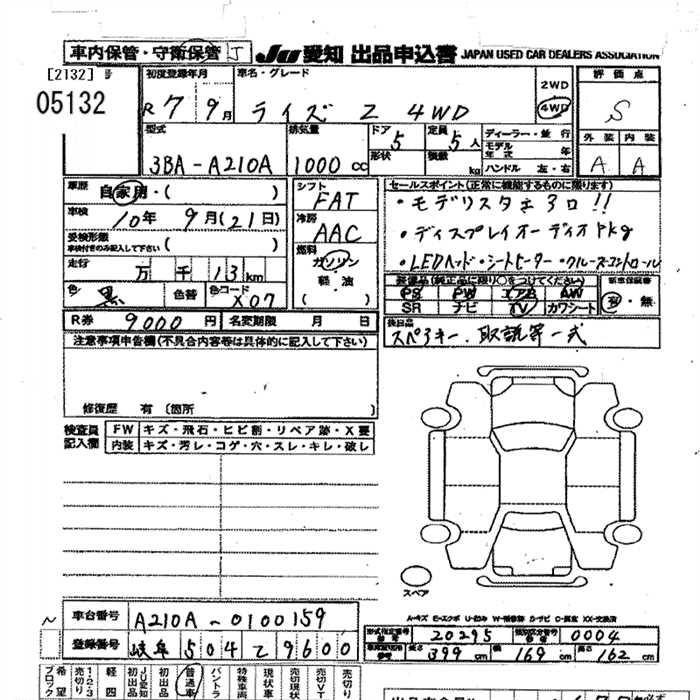 車内保管・守衛保管 J JU 愛知 出品申込書 JAPAN USED CAR DEALERS ASSOCIATION
[2132] 号
05132
初度登録年月 車名・グレード 2WD 評価点
R7 9月 ライズ Z 4WD 4WD S
型式 排気量 ドア 5 定員 5人 ディーラー・並行 外装 内装
3BA-A210A 1000cc 形状 積数 kg モデル年式 年 A A
ハンドル 左・右
車歴 自家用・( ) シフト FAT セールスポイント(正常に機能するものに限ります)
車検 10年 9月(21日) 冷房 AAC ・モデリスタ 3口!!
受検形態 車検付きのみ記入して下さい ( ) 燃料 ・ディスプレイオーディオPkg
走行 万 千 13km ガソリン ・LEDヘッド・シートヒーター・クルーズコントロール
色 黒 色替 色コード X07 軽・油 ( )
装備品(純正品に限り○をつけてください) 新車保証書
PS PW エアB AW 有・無
SR ナビ TV カワシート
R券 9000円 名変期限 月 日
後日品
スペアキー、取説等一式
注意事項申告欄(不具合内容等は具体的に記入して下さい)
修復歴 有 (箇所 )
検査員記入欄 FW キズ・飛石・ヒビ割・リペア跡・X要
内装 キズ・汚レ・コゲ・穴・スレ・キレ・破レ
スペア
A-キズ E-エクボ U-凹み W-補修跡 S-サビ C-腐食 XX-交換済
車台番号 A210A-0100159
登録番号 岐阜 504 て 9600
型式指定番号 20295 類別区分番号 0004
長さ 399cm 幅 169cm 高さ 162cm
希望ブロック 売切り 1・2・3 軽四 JU愛知初出品 初出品 普通車 バントラ 特殊車両 現状車 売切現状 売切VT 売切り